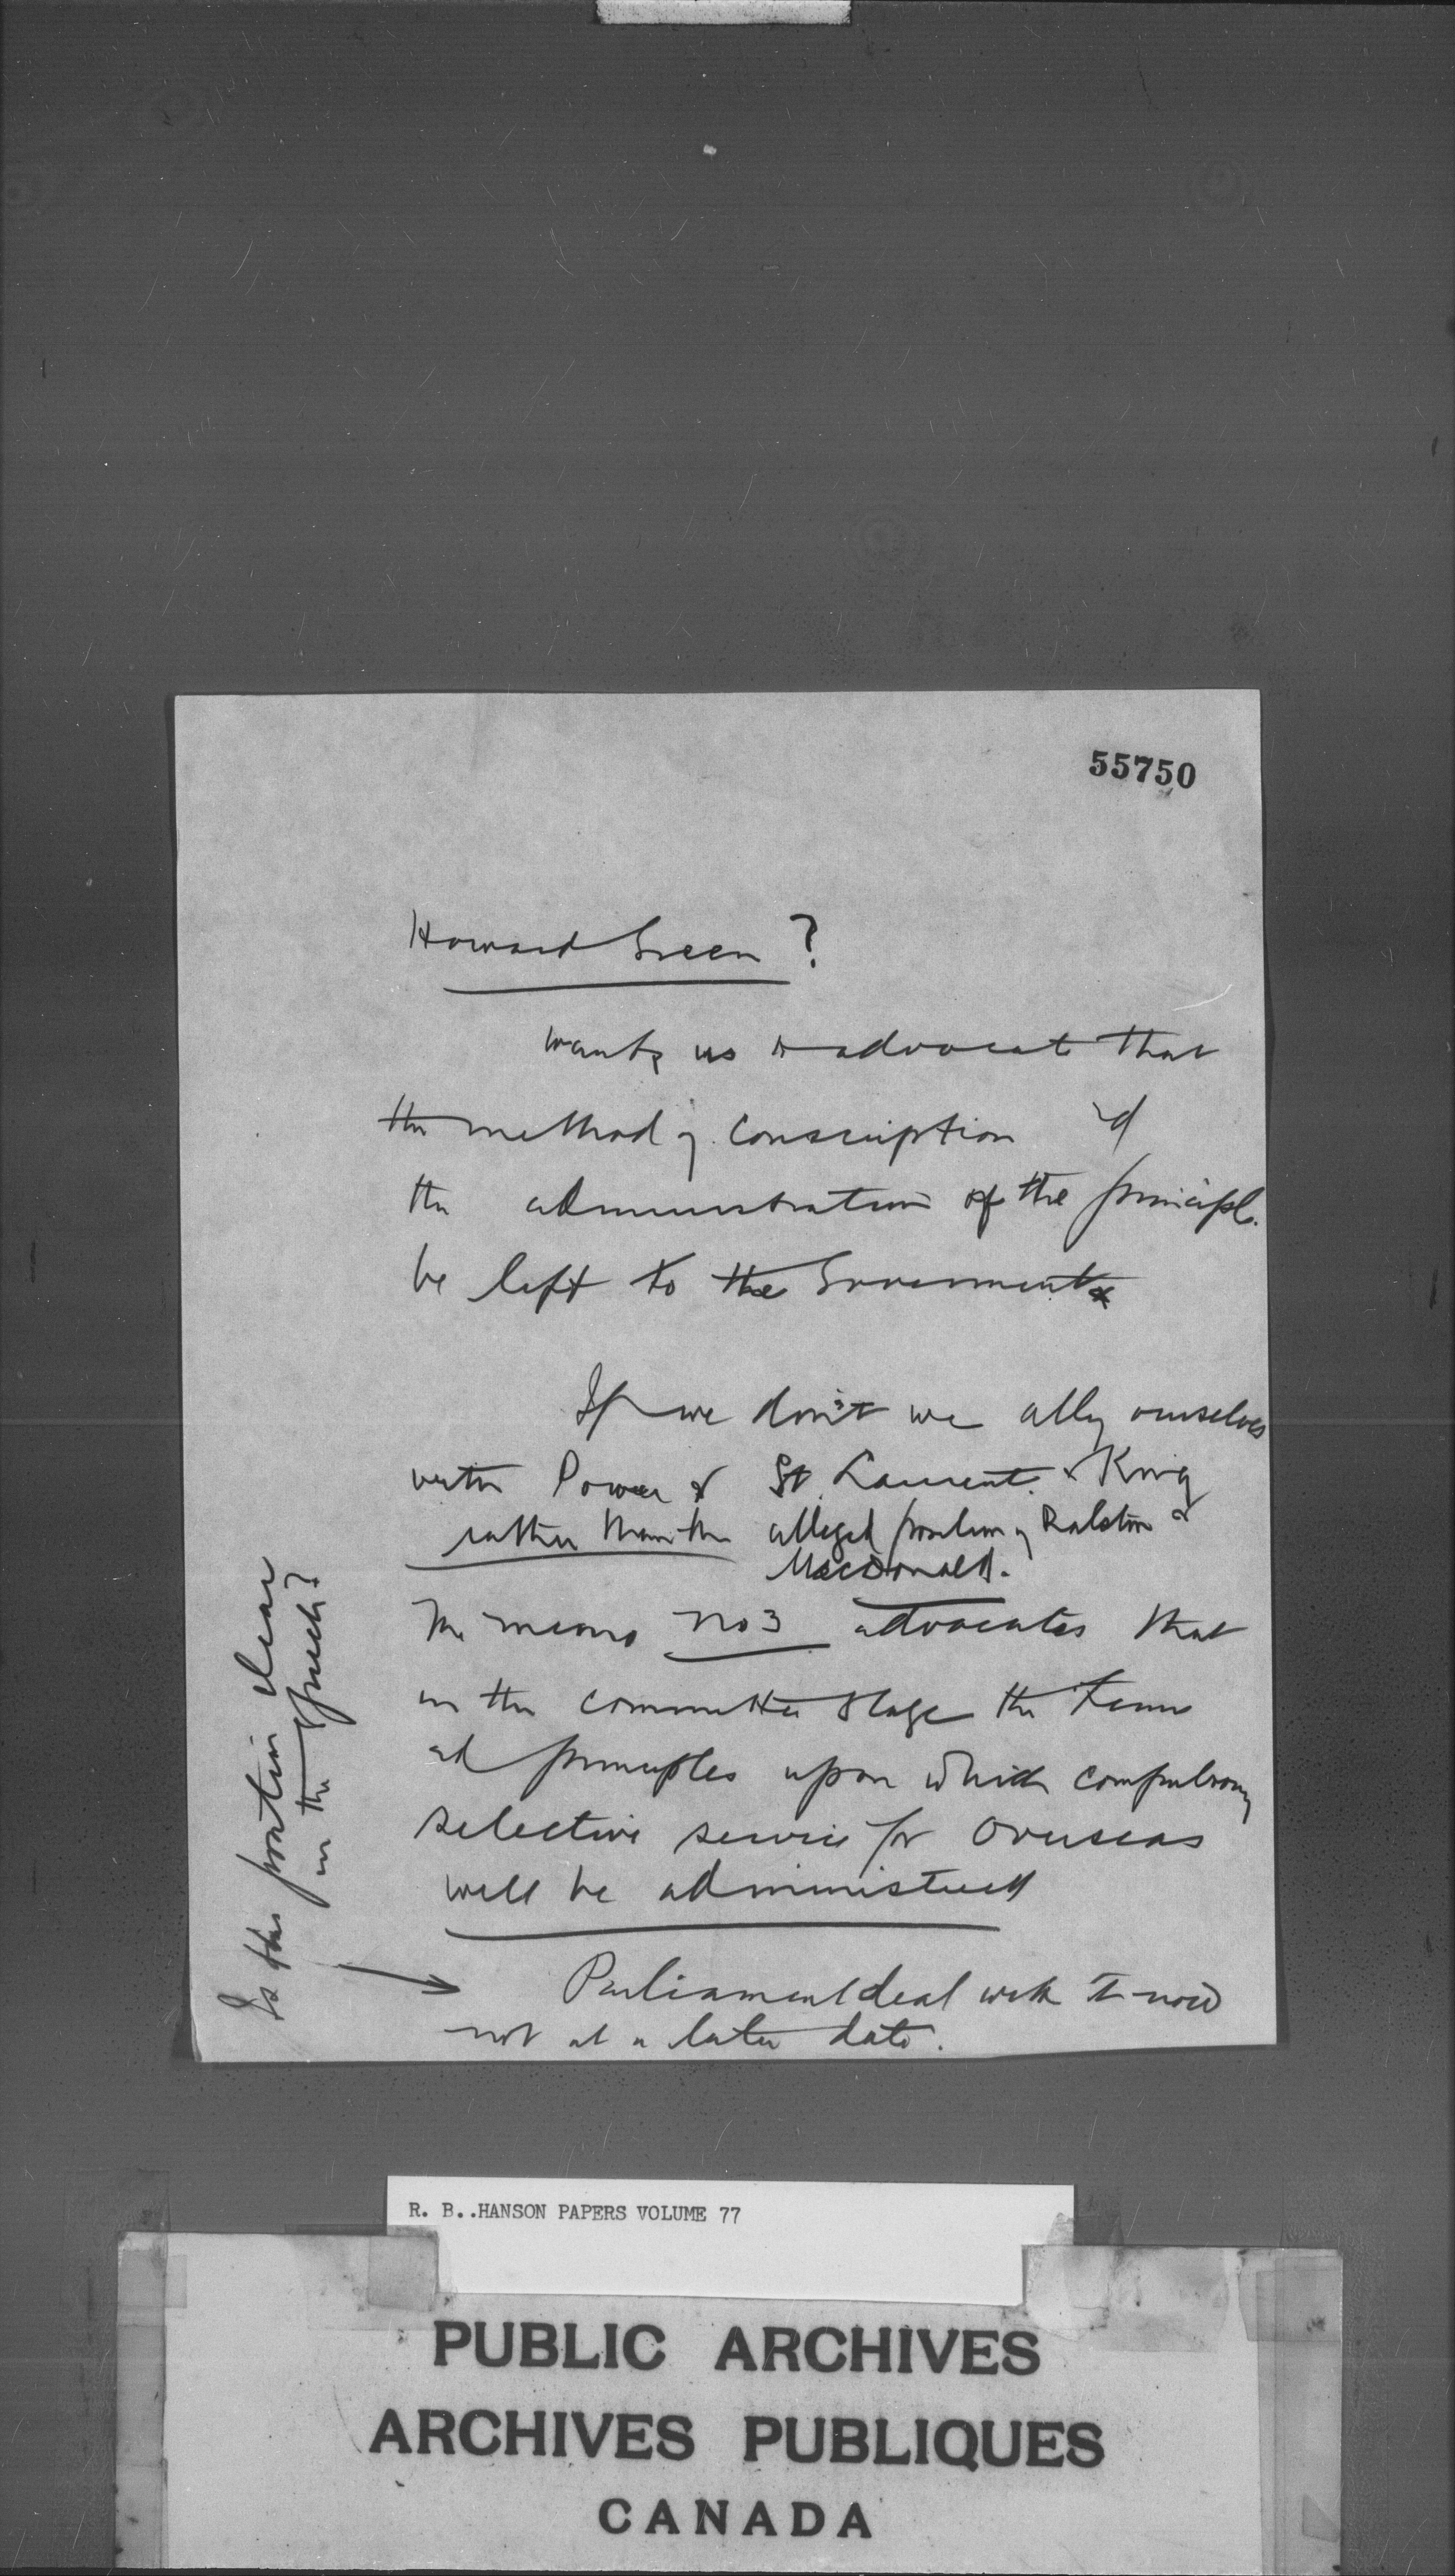 55750
Howard Green ?
wants us to advocate that
the method of conscription &
the administration of the principle
be left to the Government
If we don't we ally ourselves
with Power & St. Laurent & King
rather than the alleged position of Ralston &
MacDonald.
The memo no 3 advocates that
in the committee stage the terms
and principles upon which compulsory
selective service for overseas
will be administered
Parliament deal with it now
not at a later date.
Is this position clear
in the speech?
R. B..HANSON PAPERS VOLUME 77
PUBLIC ARCHIVES
ARCHIVES PUBLIQUES
CANADA